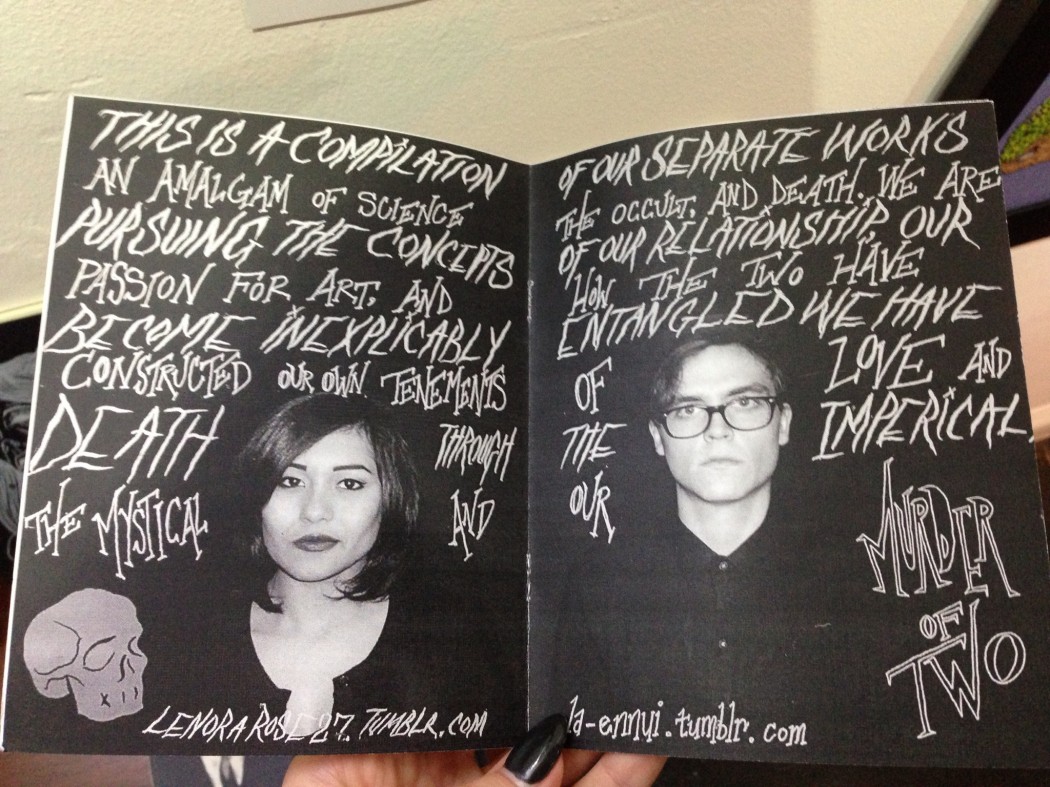 THIS IS A COMPILATION OF OUR SEPARATE WORKS
AN AMALGAM OF SCIENCE THE OCCULT, AND DEATH. WE ARE
PURSUING THE CONCEPTS OF OUR RELATIONSHIP, OUR
PASSION FOR ART, AND HOW THE TWO HAVE
BECOME INEXPLICABLY ENTANGLED WE HAVE
CONSTRUCTED OUR OWN TENEMENTS OF LOVE AND
DEATH THROUGH THE IMPERICAL,
THE MYSTICAL AND OUR MURDER
OF
TWO
LENORAROSE27.TUMBLR.COM
la-ennui.tumblr.com